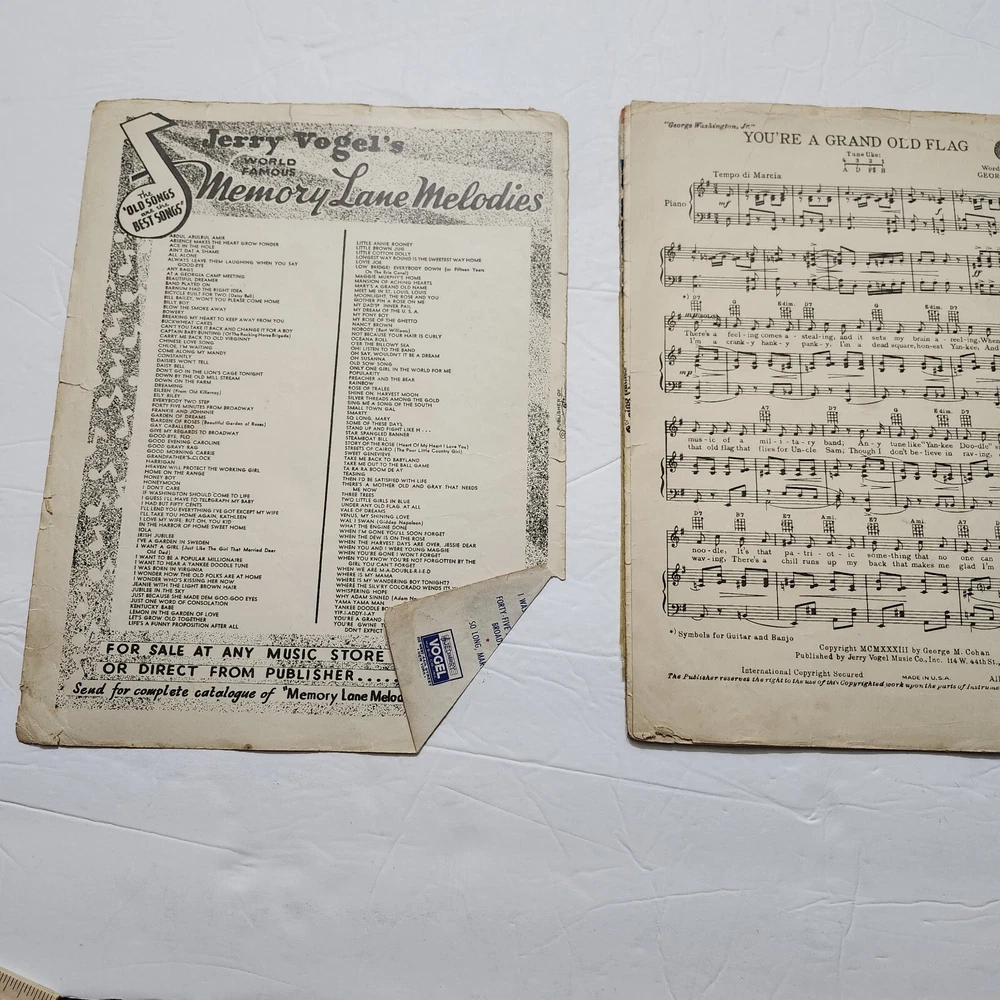 Jerry Vogel's
WORLD
FAMOUS
Memory Lane Melodies
The
"OLD SONGS
are the
BEST SONGS"
ABDUL ABULBUL AMIR
ABSENCE MAKES THE HEART GROW FONDER
ACE IN THE HOLE
AIN'T DAT A SHAME
ALL ALONE
ALWAYS LEAVE THEM LAUGHING WHEN YOU SAY
GOOD-BYE
ANY RAGS
AT A GEORGIA CAMP MEETING
BEAUTIFUL DREAMER
BAND PLAYED ON
BARNUM HAD THE RIGHT IDEA
BICYCLE BUILT FOR TWO (Daisy Bell)
BILL BAILEY, WON'T YOU PLEASE COME HOME
BILLY BOY
BLOW THE SMOKE AWAY
BOWERY
BREAKING MY HEART TO KEEP AWAY FROM YOU
BUCKWHEAT CAKES
CAN'T YOU TAKE IT BACK AND CHANGE IT FOR A BOY
CAPTAIN BABY BUNTING (Of The Rocking Horse Brigade)
CARRY ME BACK TO OLD VIRGINNY
CHINESE LOVE SONG
CHLOE, I'M WAITING
COME ALONG MY MANDY
CONSTANTLY
DAISIES WON'T TELL
DAISY BELL
DON'T GO IN THE LION'S CAGE TONIGHT
DOWN BY THE OLD MILL STREAM
DOWN ON THE FARM
DREAMING
EILEEN (From Old Killarney)
EILY RILEY
EVERYBODY TWO STEP
FORTY FIVE MINUTES FROM BROADWAY
FRANKIE AND JOHNNIE
GARDEN OF DREAMS
GARDEN OF ROSES (Beautiful Garden of Roses)
GAY CABALLERO
GIVE MY REGARDS TO BROADWAY
GOOD-BYE, FLO
GOOD EVENING CAROLINE
GOOD GRAVY RAG
GOOD MORNING CARRIE
GRANDFATHER'S-CLOCK
HARRIGAN
HEAVEN WILL PROTECT THE WORKING GIRL
HOME ON THE RANGE
HONEY BOY
HONEYMOON
I DON'T CARE
IF WASHINGTON SHOULD COME TO LIFE
I GUESS I'LL HAVE TO TELEGRAPH MY BABY
I HAD BUT FIFTY CENTS
I'LL LEND YOU EVERYTHING I'VE GOT EXCEPT MY WIFE
I'LL TAKE YOU HOME AGAIN, KATHLEEN
I LOVE MY WIFE; BUT OH, YOU KID
IN THE HARBOR OF HOME SWEET HOME
IOLA
IRISH JUBILEE
I'VE A GARDEN IN SWEDEN
I WANT A GIRL (Just Like The Girl That Married Dear
Old Dad)
I WANT TO BE A POPULAR MILLIONAIRE
I WANT TO HEAR A YANKEE DOODLE TUNE
I WAS BORN IN VIRGINIA
I WONDER HOW THE OLD FOLKS ARE AT HOME
I WONDER WHO'S KISSING HER NOW
JEANIE WITH THE LIGHT BROWN HAIR
JUBILEE IN THE SKY
JUST BECAUSE SHE MADE DEM GOO-GOO EYES
JUST ONE WORD OF CONSOLATION
KENTUCKY BABE
LEMON IN THE GARDEN OF LOVE
LET'S GROW OLD TOGETHER
LIFE'S A FUNNY PROPOSITION AFTER ALL
LITTLE ANNIE ROONEY
LITTLE BROWN JUG
LITTLE COTTON DOLLY
LONGEST WAY ROUND IS THE SWEETEST WAY HOME
LOVIE JOE
LOW BRIDGE! EVERYBODY DOWN (or Fifteen Years
On The Erie Canal)
MAGGIE MURPHY'S HOME
MANSION OF ACHING HEARTS
MARY'S A GRAND OLD NAME
MEET ME IN ST. LOUIS, LOUIS
MOONLIGHT, THE ROSE AND YOU
MOTHER PIN A ROSE ON ME
MY DAD'S DINNER PAIL
MY DREAM OF THE U. S. A.
MY PONY BOY
MY ROSE OF THE GHETTO
NANCY BROWN
NOBODY (Bert Williams)
NOT BECAUSE YOUR HAIR IS CURLY
OCEANA ROLL
O'ER THE BILLOWY SEA
OH! LISTEN TO THE BAND
OH SAY, WOULDN'T IT BE A DREAM
OH SUSANNA
OLD SOW SONG
ONLY ONE GIRL IN THE WORLD FOR ME
POPULARITY
PREACHER AND THE BEAR
RAINBOW
ROSE OF TRALEE
SHINE ON, HARVEST MOON
SILVER THREADS AMONG THE GOLD
SING ME A SONG OF THE SOUTH
SMALL TOWN GAL
SMARTY
SO LONG, MARY
SOME OF THESE DAYS
STAND UP AND FIGHT LIKE H . . .
STAR SPANGLED BANNER
STEAMBOAT BILL
STORY OF THE ROSE (Heart Of My Heart I Love You)
STREETS OF CAIRO (The Poor Little Country Girl)
SWEET GENEVIEVE
TAKE ME BACK TO BABYLAND
TAKE ME OUT TO THE BALL GAME
TA RA RA BOOM DE AY
TEASING
THEN I'D BE SATISFIED WITH LIFE
THERE'S A MOTHER OLD AND GRAY THAT NEEDS
ME NOW
THREE TREES
TWO LITTLE GIRLS IN BLUE
UNDER ANY OLD FLAG AT ALL
VALE OF DREAMS
VENUS, MY SHINING LOVE
WAL I SWAN (Giddap Napoleon)
WHAT THE ENGINE DONE
WHEN I'M GONE YOU'LL SOON FORGET
WHEN THE DEW IS ON THE ROSE
WHEN THE HARVEST DAYS ARE OVER, JESSIE DEAR
WHEN YOU AND I WERE YOUNG MAGGIE
WHEN YOU'RE GONE I WON'T FORGET
WHEN YOU KNOW YOU'RE NOT FORGOTTEN BY THE
GIRL YOU CAN'T FORGET
WHEN WE ARE M-A-DOUBLE-R-I-E-D
WHERE IS MY MAMA
WHERE IS MY WANDERING BOY TONIGHT?
WHERE THE SILV'RY COLORADO WENDS ITS
WHISPERING HOPE
WHY ADAM SINNED
YAMA YAMA MAN
YANKEE DOODLE BO
YIP-I-ADDY-I-AY
YOU'RE A GRAND
YOU'RE GWINE T
DON'T EXPECT
FOR SALE AT ANY MUSIC STORE
OR DIRECT FROM PUBLISHER.....
Send for complete catalogue of "Memory Lane Melod
VOGEL
I WA
FORTY-FIVE
BROAD
SO LONG, MAR
"George Washington, Jr."
YOU'RE A GRAND OLD FLAG
Tune Uke:
A D F# B
Word
GEOR
Tempo di Marcia
Piano
mf
*) D7 G Edim. D7 G Edim. D7
There's a feel-ing comes a - steal-ing, and it sets my brain a - reel-ing, When
I'm a crank-y hank-y pank-y, I'm a dead square, hon-est Yan-kee, And
mp
A7 D7 G Edim. D7
mus-ic of a mil-i-ta-ry band; An-y tune like "Yan-kee Doo-dle"
that old flag that flies for Un-cle Sam; Though I don't be-lieve in rav-ing,
D7 B7 Em E7 Ami. E7 Ami. A7
noo-dle, It's that pa-tri-ot-ic some-thing that no one can
wav-ing, There's a chill runs up my back that makes me glad I'm
*) Symbols for Guitar and Banjo
Copyright MCMXXXIII by George M. Cohan
Published by Jerry Vogel Music Co., Inc. 114 W. 44th St.,
International Copyright Secured MADE IN U.S.A. All
The Publisher reserves the right to the use of this Copyrighted work upon the parts of Instrum